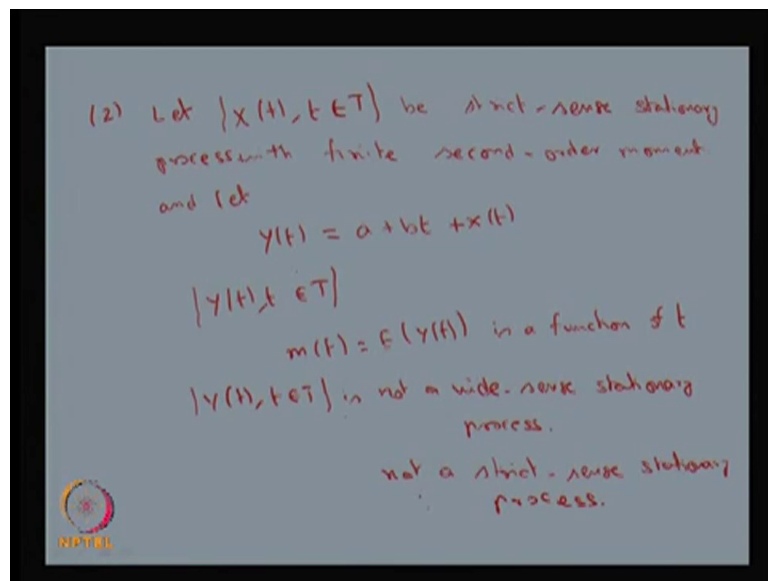 (2) Let {X(t), t ∈ T} be strict-sense stationary
process with finite second-order moment
and let
Y(t) = a + bt + X(t)
{Y(t), t ∈ T}
m(t) = E(Y(t)) is a function of t
{Y(t), t ∈ T} is not a wide-sense stationary
process.
not a strict-sense stationary
process.
NPTEL